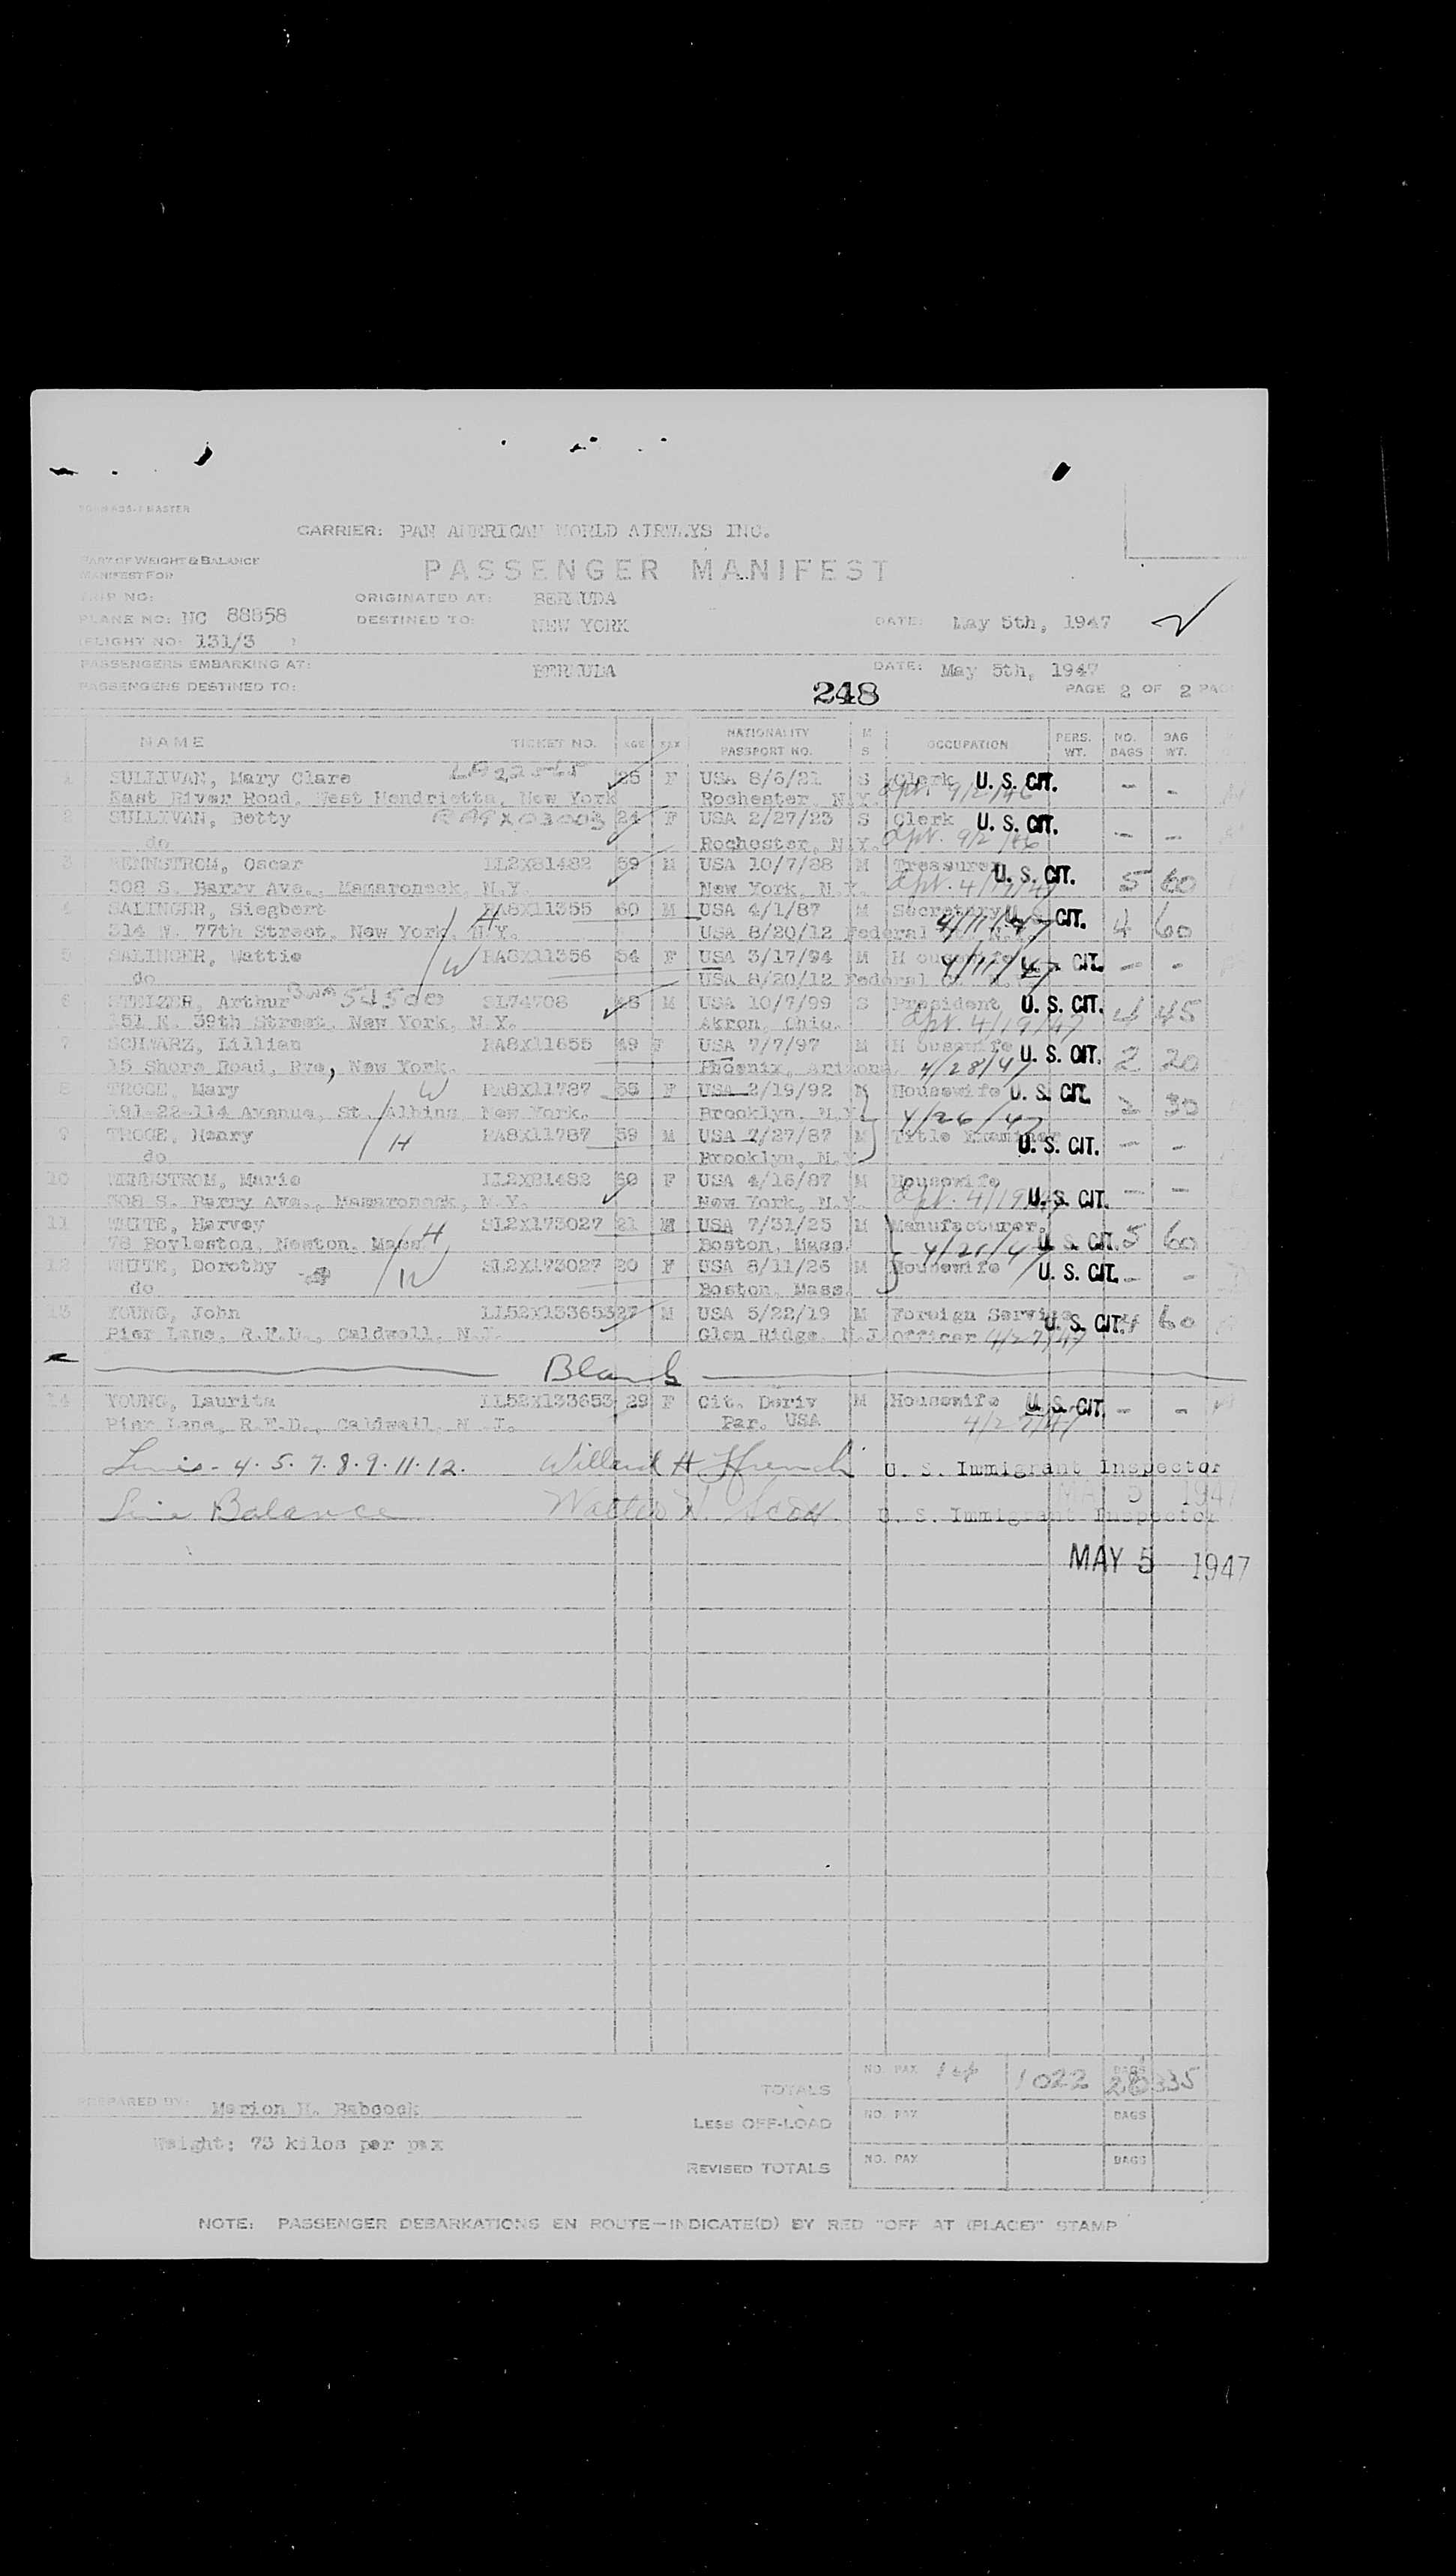 FORM ADS-1 MASTER
CARRIER: PAN AMERICAN WORLD AIRWAYS INC.
PART OF WEIGHT & BALANCE
MANIFEST FOR
PASSENGER MANIFEST
TRIP NO:
ORIGINATED AT: BERMUDA
PLANE NO: NC 88858
DESTINED TO: NEW YORK
DATE: May 5th, 1947
FLIGHT NO: 131/3
PASSENGERS EMBARKING AT: BERMUDA
DATE: May 5th, 1947
PASSENGERS DESTINED TO:
248
PAGE 2 OF 2
NAME TICKET NO. AGE SEX NATIONALITY PASSPORT NO. M S OCCUPATION PERS. WT. NO. BAGS BAG WT.
1 SULLIVAN, Mary Clare 25 F USA 8/6/21 S Clerk U. S. CIT. - -
East River Road, West Hendrietta, New York Rochester, N.Y. apr. 9/2/46
2 SULLIVAN, Betty 24 F USA 2/27/23 S Clerk U. S. CIT. - -
do Rochester, N.Y. apr. 9/2/46
3 WENNSTROM, Oscar LL2X81482 59 M USA 10/7/88 M Treasurer U. S. CIT. 5 60
308 S. Barry Ave., Mamaroneck, N.Y. New York, N.Y. apr. 4/19/47
4 SALINGER, Siegbert RA8X11355 60 M USA 4/1/87 M Secretary U. S. CIT. 4 60
314 W. 77th Street, New York, N.Y. H USA 8/20/12 Federal 4/11/47
5 SALINGER, Hattie W RA8X11356 54 F USA 3/17/94 M Housewife U. S. CIT. - -
do USA 8/20/12 Federal 4/11/47
6 STELZER, Arthur SL74708 48 M USA 10/7/99 S President U. S. CIT. 4 45
151 E. 39th Street, New York, N.Y. Akron, Ohio. apr. 4/19/47
7 SCHWARZ, Lillian RA8X11655 49 F USA 7/7/97 M Housewife U. S. CIT. 2 20
15 Shore Road, Rye, New York. Phoenix, Arizona. 4/28/47
8 TROGE, Mary W RA8X11787 55 F USA 2/19/92 M Housewife U. S. CIT. 2 30
191-22-114 Avenue, St. Albins New York. Brooklyn, N.Y. 4/26/47
9 TROGE, Henry H RA8X11787 59 M USA 7/27/87 M Title Examiner U. S. CIT. - -
do Brooklyn, N.Y.
10 WENNSTROM, Marie LL2X81482 60 F USA 4/16/87 M Housewife U. S. CIT. - -
308 S. Barry Ave., Mamaroneck, N.Y. New York, N.Y. apr. 4/19/47
11 WHITE, Harvey H SL2X173027 21 M USA 7/31/25 M Manufacturer. U. S. CIT. 5 60
78 Boyleston, Newton, Mass Boston, Mass.
12 WHITE, Dorothy W SL2X173027 20 F USA 8/11/26 M Housewife U. S. CIT. - -
do Boston, Mass.
13 YOUNG, John LL52X133653 27 M USA 5/22/19 M Foreign Service U. S. CIT. 4 60
Pier Lane, R.F.D., Caldwell, N.J. Glen Ridge, N.J. Officer 4/27/47
Blank
14 YOUNG, Laurita LL52X133653 29 F Cit. Deriv M Housewife U. S. CIT. - -
Pier Lane, R.F.D., Caldwell, N.J. Par. USA 4/27/47
Lines - 4. 5. 7. 8. 9. 11. 12. Willard H. U. S. Immigrant Inspector
MAY 5 1947
Line Balance Walter N. Scott U. S. Immigrant Inspector
MAY 5 1947
TOTALS NO. PAX 14 1022 BAGS 26 335
PREPARED BY: Marion H. Babcock
LESS OFF-LOAD NO. PAX BAGS
Weight: 73 kilos per pax
REVISED TOTALS NO. PAX BAGS
NOTE: PASSENGER DEBARKATIONS EN ROUTE—INDICATE(D) BY RED "OFF AT (PLACE)" STAMP